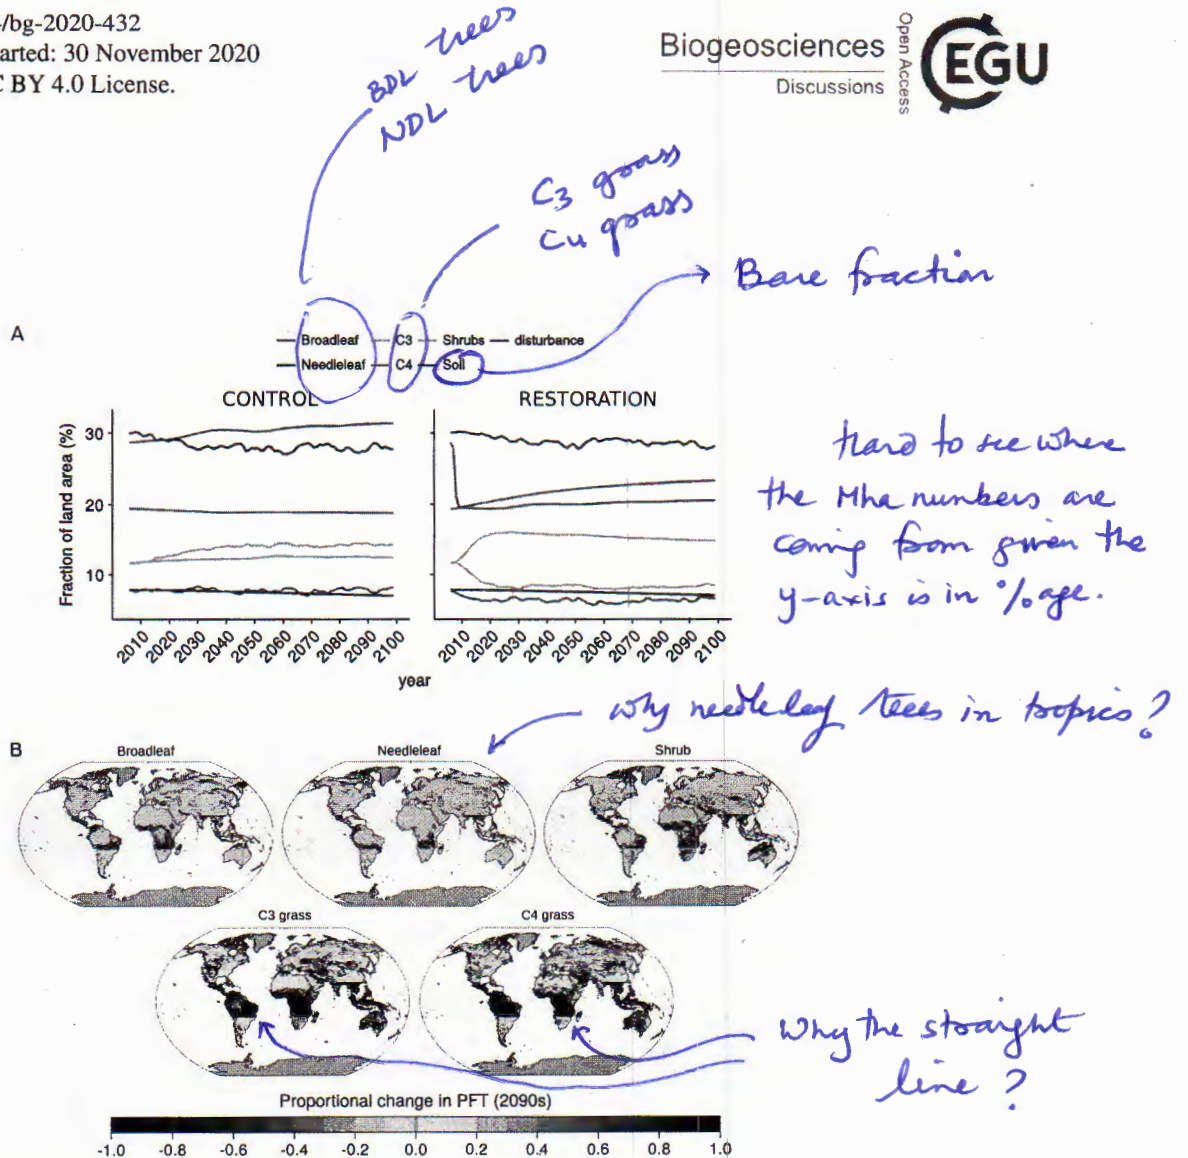 4/bg-2020-432
arted: 30 November 2020
C BY 4.0 License.
Biogeosciences
Discussions
Open Access
EGU
BDL trees
NDL trees
C3 grass
C4 grass
Bare fraction
A
Broadleaf C3 Shrubs disturbance
Needleleaf C4 Soil
CONTROL RESTORATION
Fraction of land area (%)
30
20
10
2010 2020 2030 2040 2050 2060 2070 2080 2090 2100
2010 2020 2030 2040 2050 2060 2070 2080 2090 2100
year
Hard to see where
the Mha numbers are
coming from given the
y-axis is in %age.
why needleleaf trees in tropics?
B
Broadleaf Needleleaf Shrub
C3 grass C4 grass
why the straight
line?
Proportional change in PFT (2090s)
-1.0 -0.8 -0.6 -0.4 -0.2 0.0 0.2 0.4 0.6 0.8 1.0